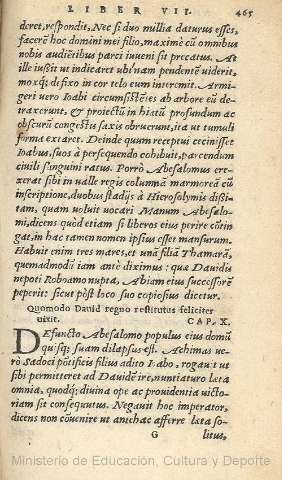 LIBER VII. 465
deret, respondit, Nec si duo millia daturus esses,
facerẽ hoc domini mei filio, maximè cũ omnibus
nobis audiẽtibus parci iuueni sit precatus. At
ille iußit ut indicaret ubi nam pendentẽ uiderit,
moxq; defixo in cor telo eum interemit. Armi-
geri uero Ioabi circumsistẽtes ab arbore eũ de-
traxerunt, & proiectũ in hiatũ profundum ac
obscurũ congestis saxis obruerunt, ita ut tumuli
forma extaret. Deinde quum receptui cecinisset
Ioabus, suos à persequendo cohibuit, parcendum
ciuili sanguini ratus. Porrò Abesalomus ere-
xerat sibi in ualle regis columnã marmoreã cũ
inscriptione, duobus stadijs à Hierosolymis dißi-
tam, quam uoluit uocari Manum Abesalo-
mi, dicens quòd etiam si liberos eius perire cõtin
gat, in hac tamen nomen ipsius esset mansurum.
Habuit enim tres mares, et unã filiã Thamarã,
quemadmodũ iam antè diximus: qua Dauidis
nepoti Roboamo nupta, Abiam eius successorẽ
peperit: sicut pòst loco suo copiosius dicetur.
Quomodo Dauid regno restitutus feliciter
uixit. CAP. X.
DEfuncto Abesalomo populus eius domũ
quisq; suam dilapsus est. Achimas ue-
rò Sadoci põtificis filius adito Iabo, rogauit ut
sibi permitteret ad Dauidẽ ire, nuntiaturo læta
omnia, quodq; diuina ope ac prouidentia uicto-
riam sit consequutus. Negauit hoc imperator,
dicens non cõuenire ut antehac afferre læta so-
G litus,
Ministerio de Educación, Cultura y Deporte